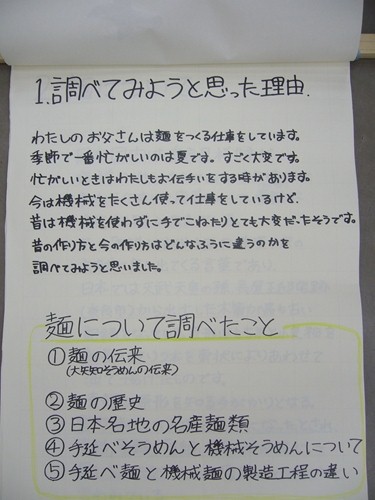 1.調べてみようと思った理由.
わたしのお父さんは麺をつくる仕事をしています。
季節で一番忙がしいのは夏です。すごく大変です。
忙がしいときはわたしもお伝いをする時があります。
今は機械をたくさん使って仕事をしているけど、
昔は機械を使わずに手でこねたりとても大変だったそうです。
昔の作り方と今の作り方はどんなふうに違うのかを
調べてみようと思いました。
麺について調べたこと
①麺の伝来
(大矢知そうめんの伝来)
②麺の歴史
③日本各地の名産麺類
④手延べそうめんと機械そうめんについて
⑤手延べ麺と機械麺の製造工程の違い